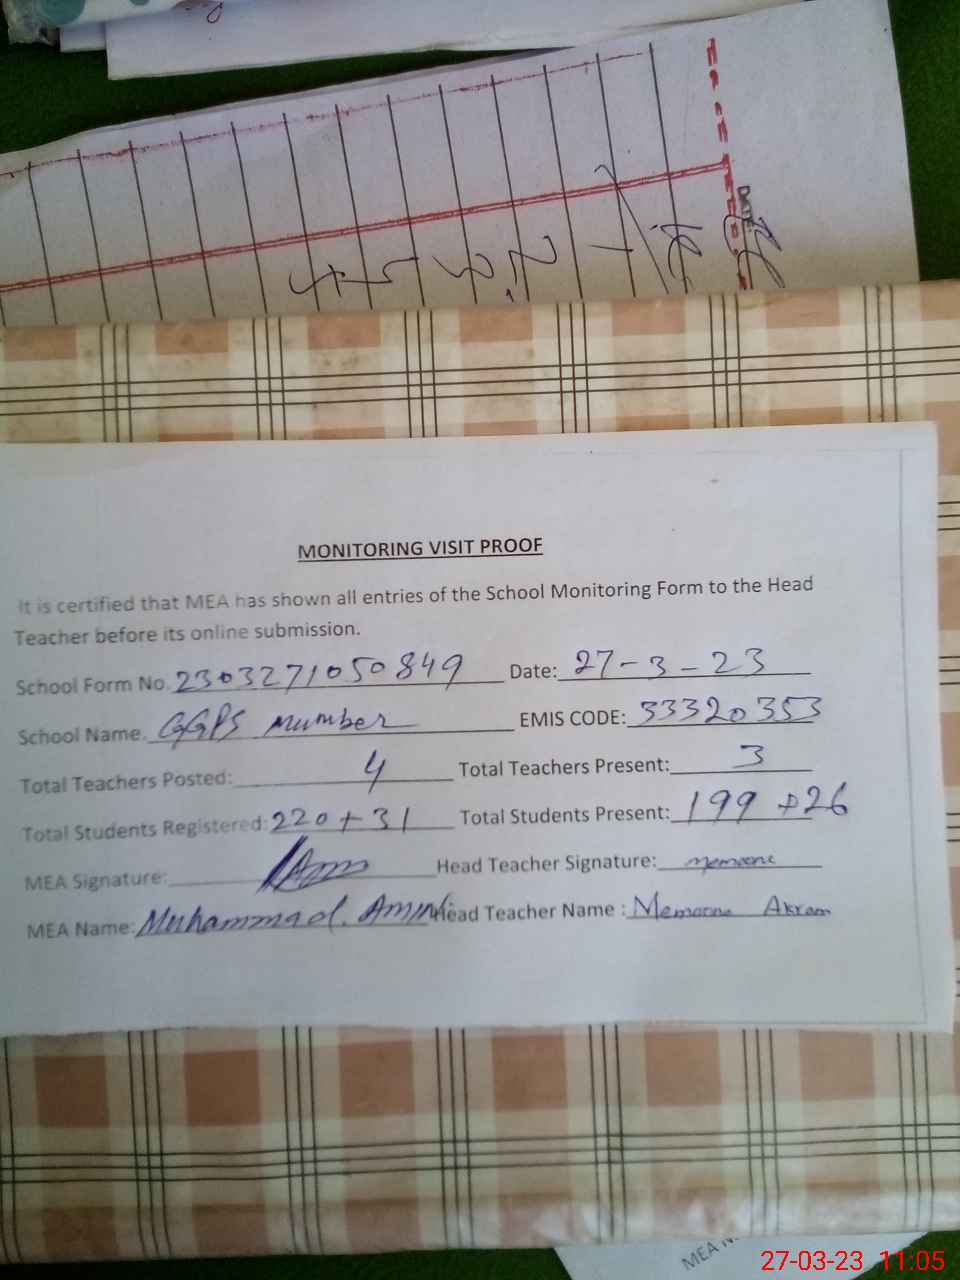 DATE:
MONITORING VISIT PROOF
It is certified that MEA has shown all entries of the School Monitoring Form to the Head
Teacher before its online submission.
School Form No. 2303271050849 Date: 27-3-23
School Name. GGPS Mumber EMIS CODE: 33320353
Total Teachers Posted: 4 Total Teachers Present: 3
Total Students Registered: 220+31 Total Students Present: 199+26
MEA Signature: Head Teacher Signature:
MEA Name: Muhammad. Amin Head Teacher Name : Akram
MEA
27-03-23 11:05